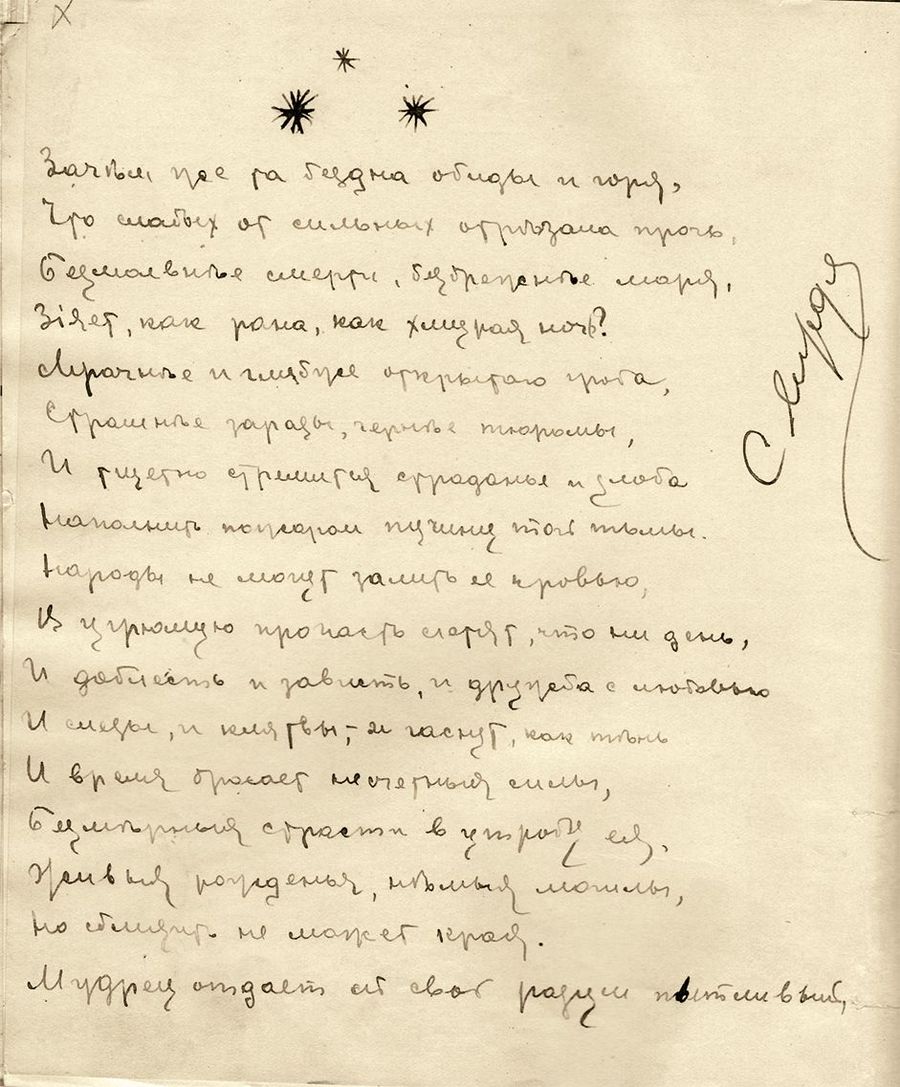 Зачѣмъ же та бездна обиды и горя,
Что слабых от сильных отрѣзала прочь,
Безмолвнѣе смерти, безбрежнѣе моря,
Зіяет, как рана, как хмурая ночь?
Мрачнѣе и глубже открытаго гроба,
Страшнѣе заразы, чернѣе тюрьмы,
И тщетно стремится страданье и злоба
Наполнить пожаром пучину той тьмы.
Народы не могут залить ее кровью,
В угрюмую пропасть летят, что ни день,
И доблесть и зависть, и дружба с любовью
И слезы, и клятвы, – и гаснут, как тѣнь
И время бросает несчетныя силы,
Безмѣрныя страсти в утробу ея,
Живыя рожденья, нѣмыя могилы,
Но сблизить не может края.
Мудрец отдает ей свой разум пытливый,